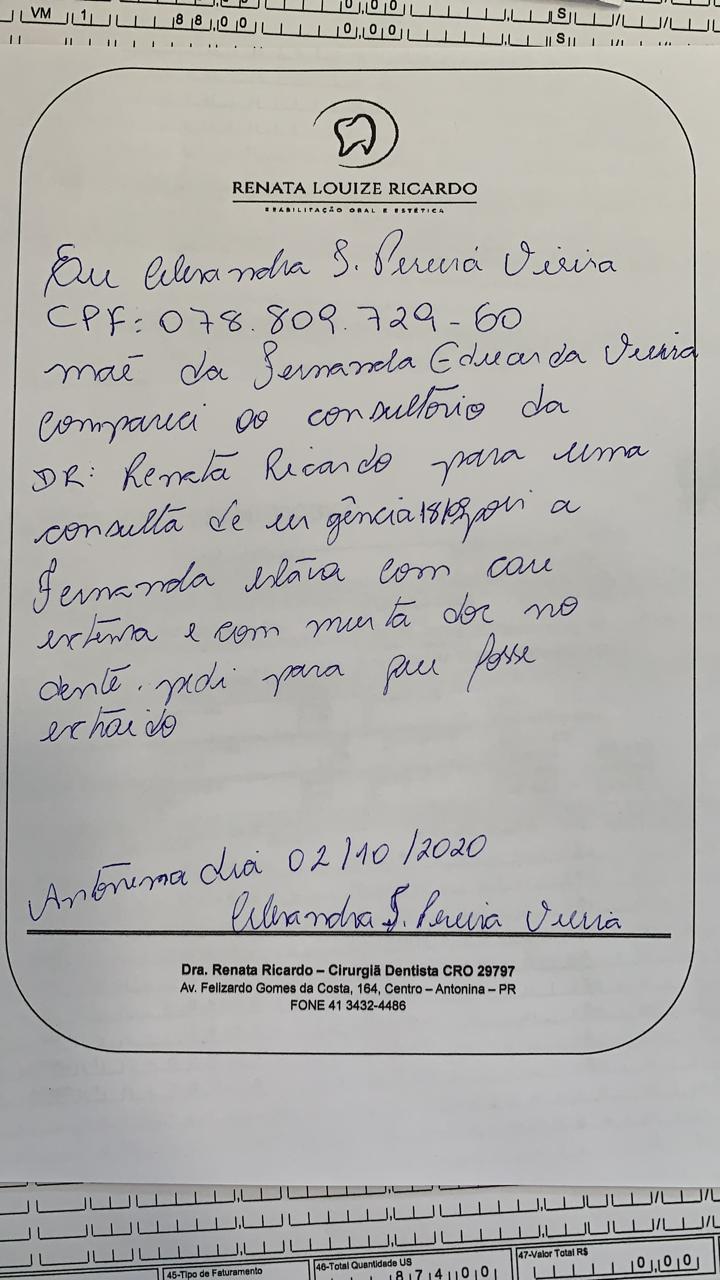 VM 1 8 8 0 0 0 0 0 S
0 0 0 S
RENATA LOUIZE RICARDO
REABILITAÇÃO ORAL E ESTÉTICA
Eu Alexandra S. Pereira Vieira
CPF: 078.809.729-60
maê da Fernanda Eduarda Vieira
compareci ao consultório da
DR: Renata Ricardo para uma
consulta de urgência 18/09 poi a
Fernanda estava com carie
extensa e com muita dor no
dente. pedi para que fosse
extraido
Antonina dia 02/10/2020
Alexandra S. Pereira Vieira
Dra. Renata Ricardo – Cirurgiã Dentista CRO 29797
Av. Felizardo Gomes da Costa, 164, Centro – Antonina – PR
FONE 41 3432-4486
45-Tipo de Faturamento 46-Total Quantidade US 8 7 4 0 0 47-Valor Total R$ 0,00